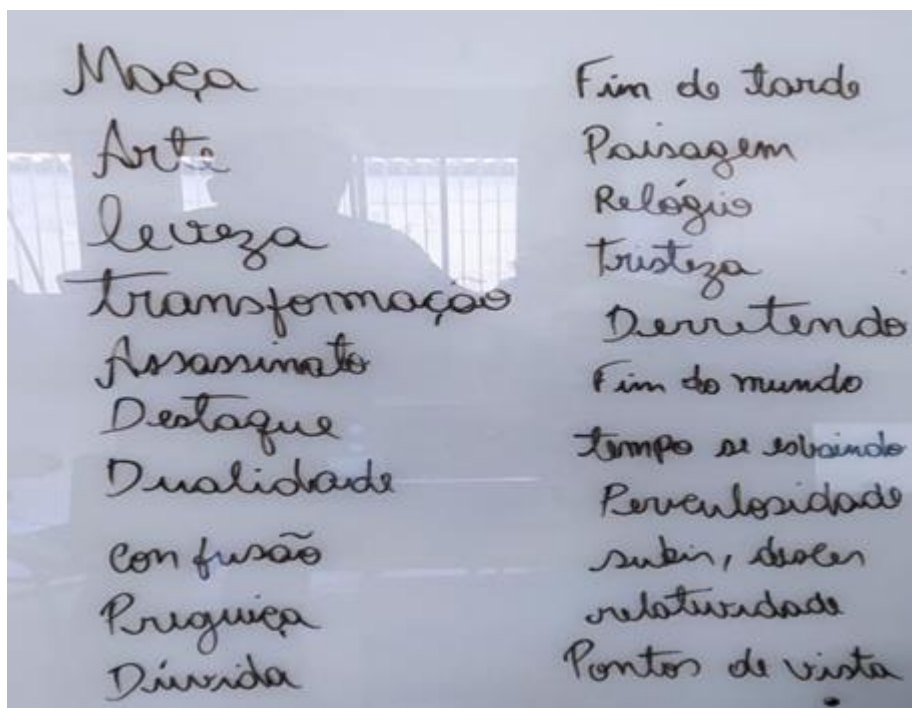 Maça
Arte
leveza
transformação
Assassinato
Destaque
Dualidade
confusão
Preguiça
Dúvida
Fim de tarde
Paisagem
Relógio
tristeza
Derretendo
Fim do mundo
tempo se esvaindo
Periculosidade
subir, descer
relatividade
Pontos de vista